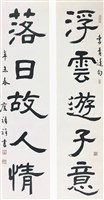 浮雲遊子意
落日故人情